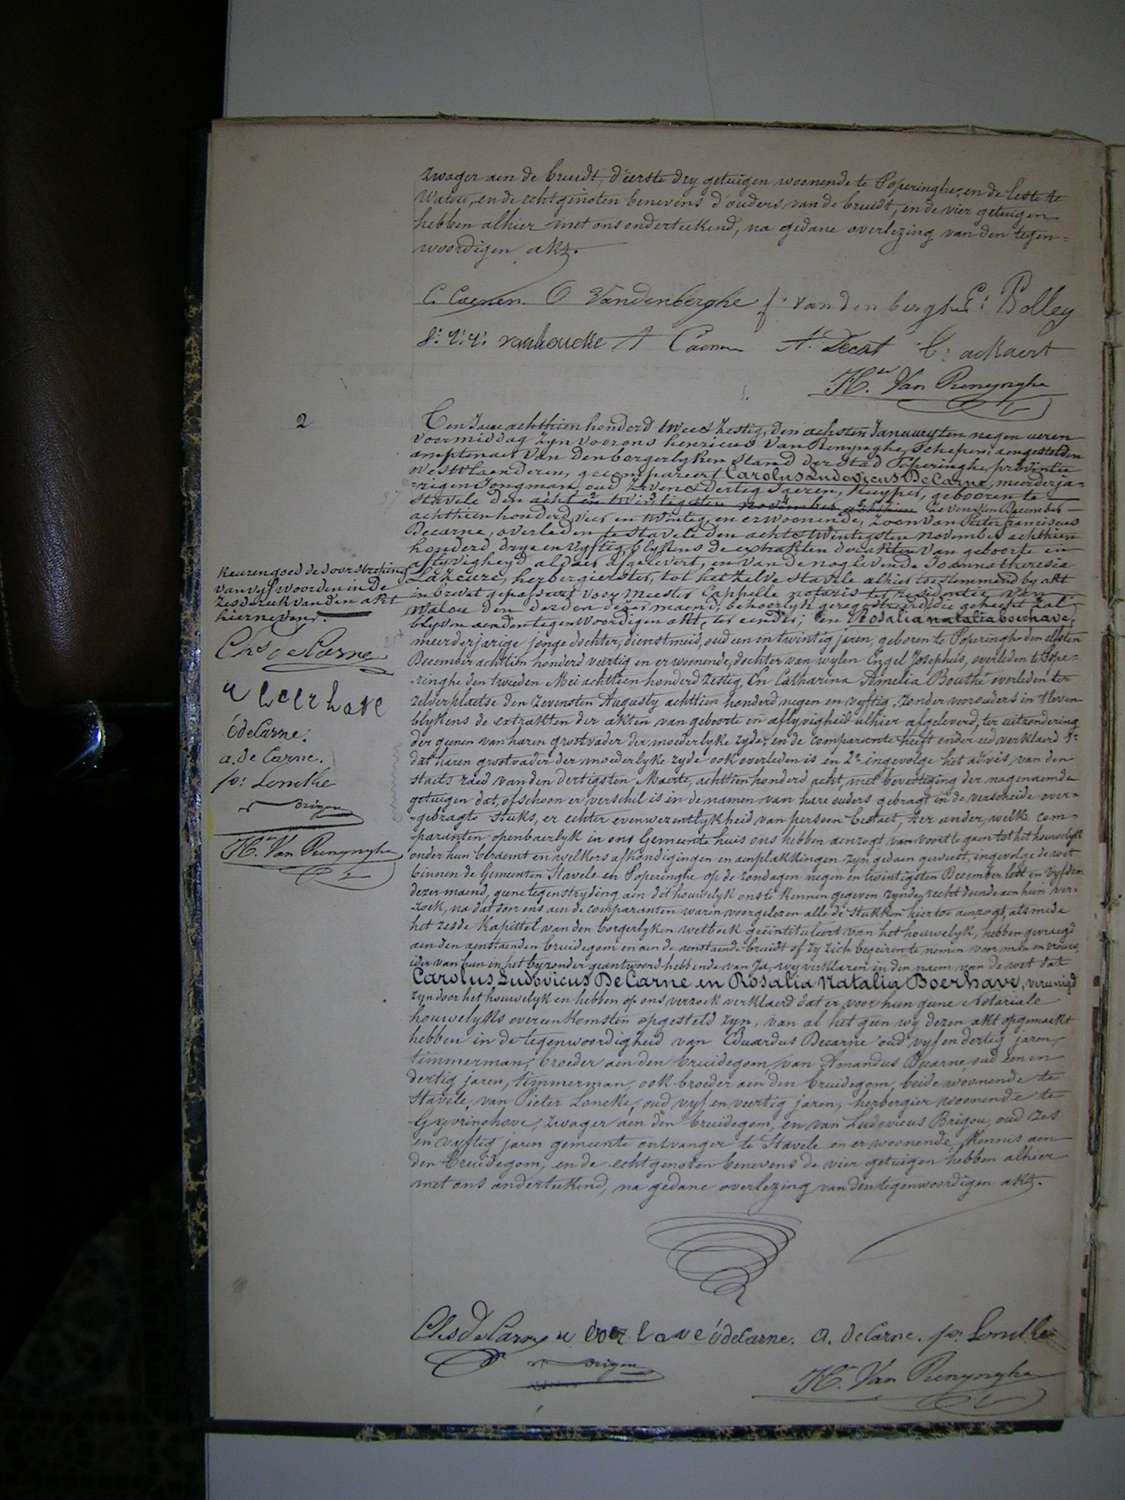 zwager aen de bruidt, d'eerste dry getuigen woonende te Poperinghe, en de leste te
Watou, en de echtgenoten benevens d'ouders van de bruidt, en de vier getuigen
hebben alhier met ons onderteekend, na gedane overlezing van den tegen=
woordigen akt.
C. Coenen O Vandenberghe f. vandenberghe C: Bolley
vanhoucke A Coenen A. Decat C: ackaert
H. Van Renynghe
2
Ten Jaere achttien honderd twee zestig, den achsten January ten negen ueren
voormiddag zyn voor ons henricus Van Renynghe, Schepen, aengestelden
amptenaer van den borgerlyken stand der stad Poperinghe, provintie
Westvlaenderen, gecompareert Carolus Ludovicus De Carne, meerderja-
rigen Jongman, oud zeven en dertig Jaeren, kuyper, gebooren te
Stavele den acht en twintigsten november achttien zevensten December
achttien honderd vier en twintig, en er woonende, zoon van Pieter franciscus
Decarne, overleden te Stavele den acht en twintigsten november achttien
honderd drye en vyftig, blykens de extrakten der akten van geboorte en
aflyvigheyd aldaer afgelevert, en van de nog levende Joanna theresia
Lazeure, herbergierster, tot het zelve Stavele alhier toestemmend by akt
in brevet gepasseerd voor Meester Cappelle notaris te residentie van
Watou den derden dezer maend, behoorlyk geregistreerd, die gehecht zal
blyven aen den tegenwoordigen akt, ter eender; en Rosalia natalia boerhave,
meerderjarige jonge dochter, dienstmeid, oud een en twintig jaren, geboren te Poperinghe den elfsten
December achttien honderd veertig en er woonende, dochter van wylen Engel Josephus, overleden te Pope-
ringhe den tweeden Mei achttien honderd zestig, en Catharina Amelia Bouthé overleden ter
zelder plaetse den zevensten Augusty achttien honderd negen en vyftig, zonder voorouders in leven
blykens de extrakten der akten van geboorte en aflyvigheid alhier afgeleverd, ter uitzondering
der genen van haren grootvader der moederlyke zyde, en de comparante heeft onder eed verklaerd 1°
dat haren grootvader der moederlyke zyde ook overleden is en 2° ingevolge het advis, van den
staets raed van den dertigsten Maerte, achttien honderd acht, met bevestiging der nagenaemde
getuigen dat, ofschoon er verschil is in de namen van hare ouders gebragt in de verscheide over-
gebragte stuks, er echter evenwezentlykheid van persoon bestaet, zer ander, welke com-
paranten openbaerlyk in ons Gemeente huis ons hebben aenzogt van voort te gaen tot het houwelyk
onder hun beraemt en welkers afkondigingen en aenplakkingen zyn gedaen geweest, ingevolge de wet
binnen de Gemeenten Stavele en Poperinghe op de zondagen negen en twintigsten December lest en vyfden
dezer maend, geene tegenstryding aen dit houwelyk ons te kennen gegeven zynde, recht doende aen hun ver-
zoek, na dat door ons aen de comparanten waren voorgelezen alle de stukken hiertoe aenzogt, als mede
het zesde kapittel van den borgerlyken wetboek geïntituleert van het houwelyk, hebben gevraegd
aen den aenstaenden bruidegom en aen de aenstaende bruidt of zy zich begeiren te nemen voor man en vrouw
ider van hun in het byzonder geantwoord hebbende van Ja, wy verklaren in den naem van de wet dat
Carolus Ludovicus De Carne en Rosalia Natalia Boerhave, vereenigd
zyn door het houwelyk en hebben op ons verzoek verklaerd dat er voor hun geene Notariale
houwelyks overeenkomsten opgesteld zyn, van al het geen wy dezen akt opgemaekt
hebben in de tegenwoordigheid van Eduardus Decarne oud vyf en dertig jaren,
timmerman, broeder aen den bruidegom, van Amandus Decarne, oud een en
dertig jaren, timmerman, ook broeder aen den bruidegom, beide woonende te
Stavele, van Pieter Loncke, oud vyf en veertig jaren, herbergier woonende te
Gyverinchove, zwager aen den bruidegom, en van Ludovicus Brigou, oud zes
en vyftig jaren gemeente ontvanger te Stavele en er woonende, kennis aen
den bruidegom, en de echtgenoten benevens de vier getuigen hebben alhier
met ons onderteekend, na gedane overlezing van den tegenwoordigen akt.
keuren goed de doorstreking
van vyf woorden in de
zesde reuk van den akt
hiernevens.
Chs deCarne
r boerhave
édeCarne.
a. de Carne.
pr: Loncke
Brigou
H. Van Renynghe
Chs deCarne r boerhave édeCarne. a. deCarne. pr. Loncke
Brigou
H. Van Renynghe